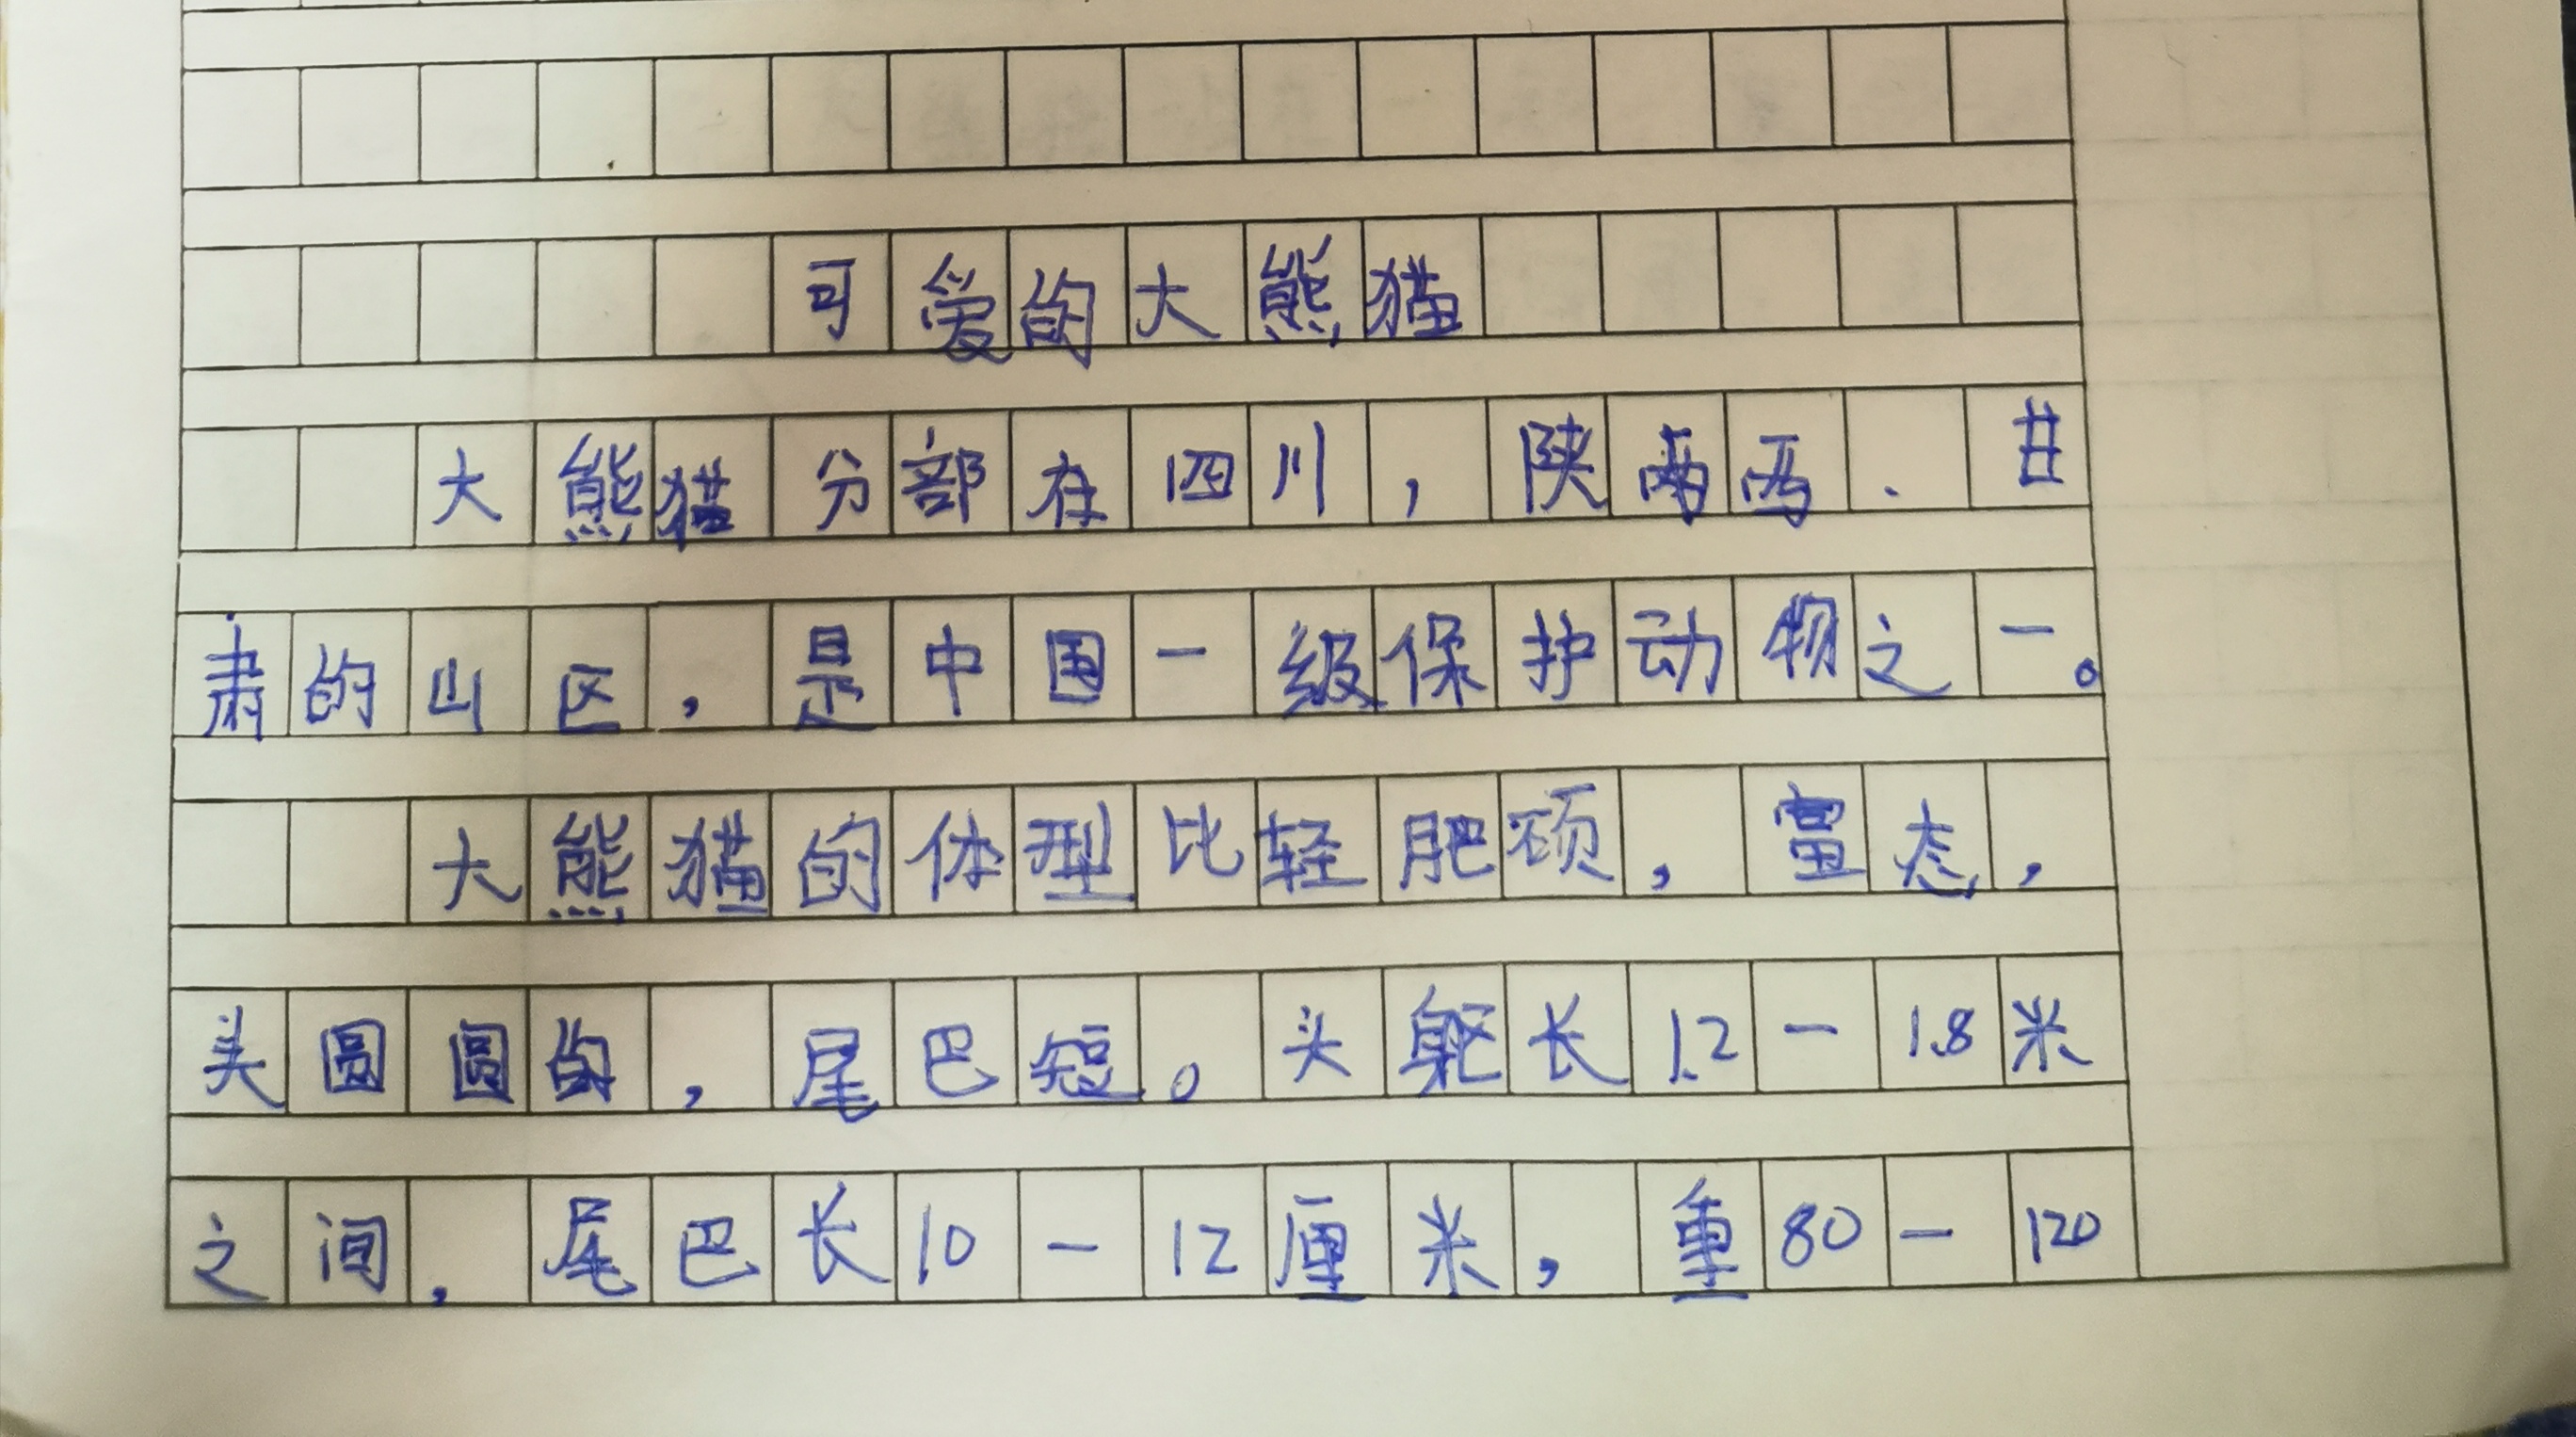 可爱的大熊猫
大熊猫分部在四川，陕西.甘
肃的山区，是中国一级保护动物之一。
大熊猫的体型比轻肥硕，富态，
头圆圆的，尾巴短。头躯长1.2－1.8米
之间，尾巴长10－12厘米，重80－120